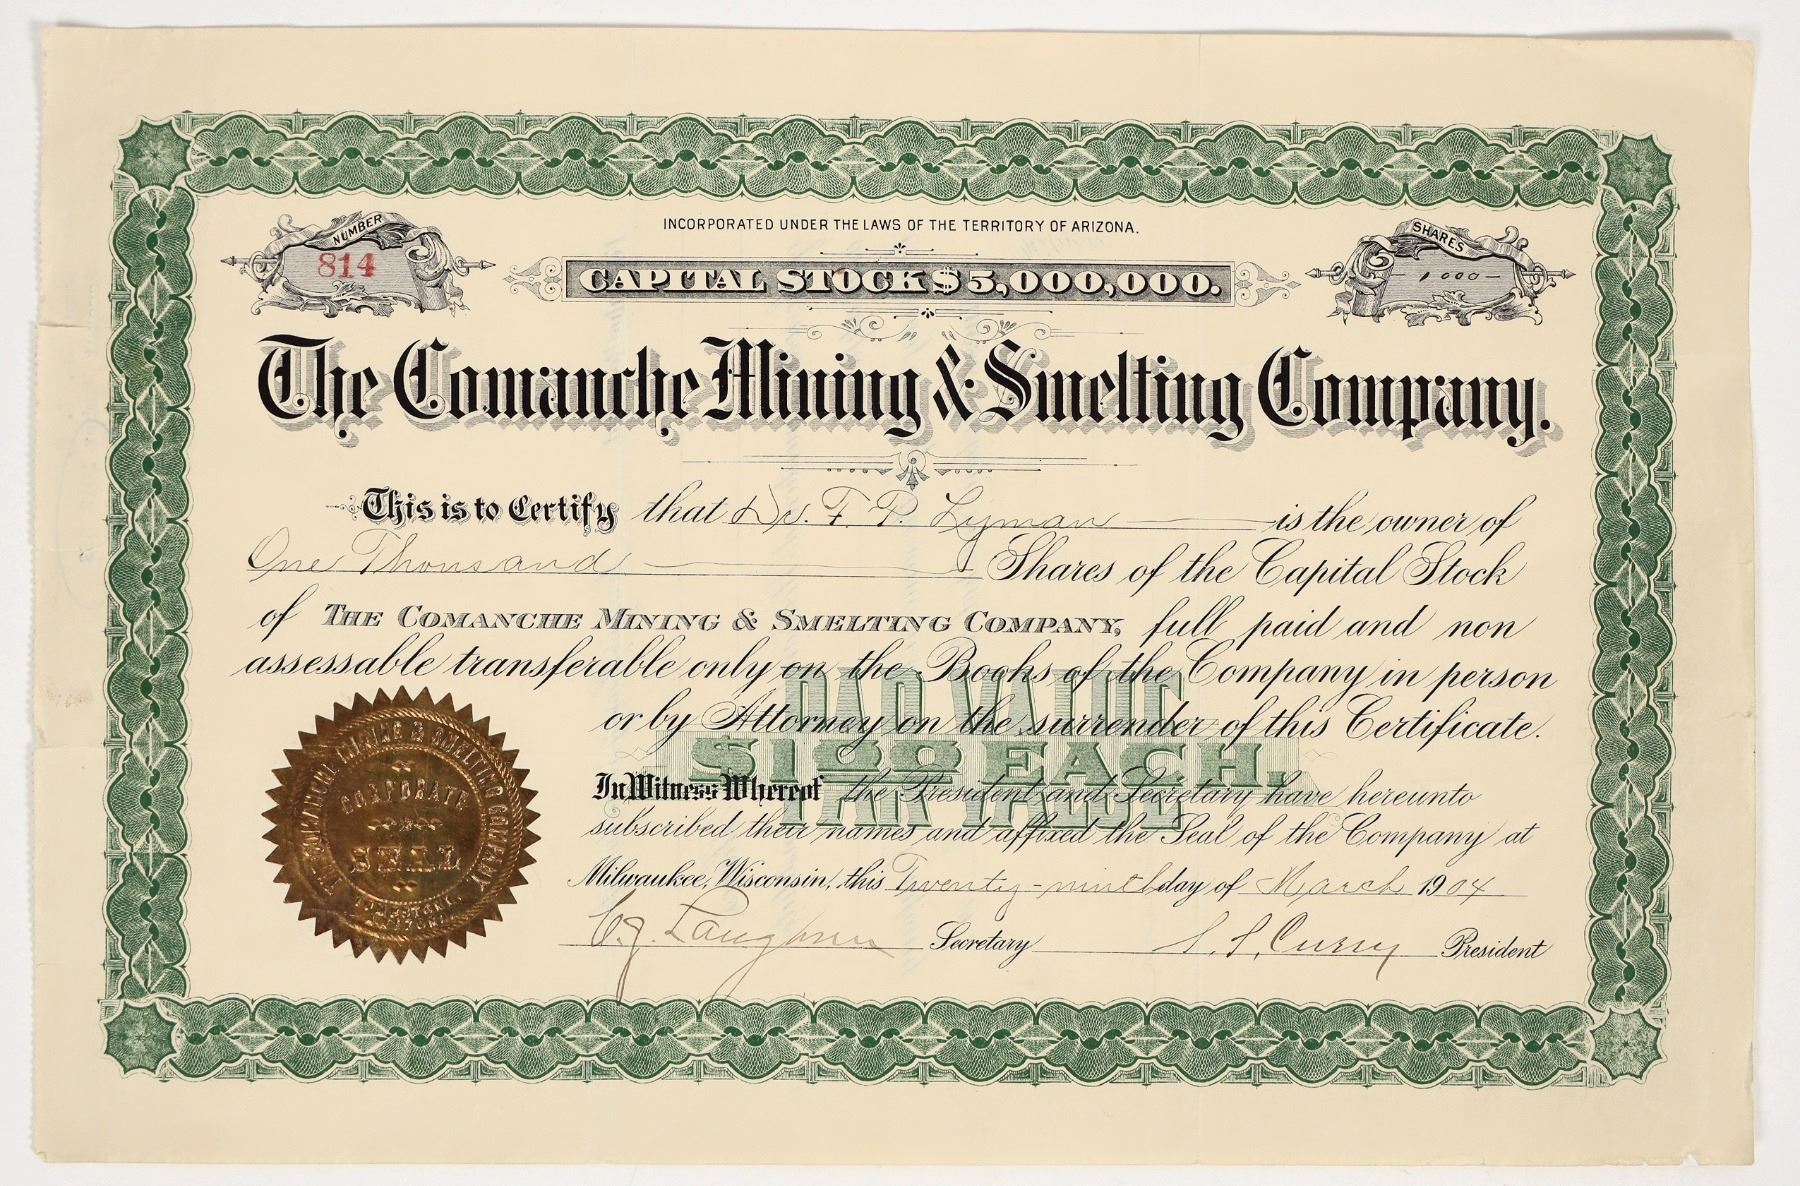 INCORPORATED UNDER THE LAWS OF THE TERRITORY OF ARIZONA.
NUMBER
814
CAPITAL STOCK $5,000,000.
SHARES
1000
The Comanche Mining & Smelting Company.
This is to Certify that Dr. F. P. Lyman is the owner of
One Thousand Shares of the Capital Stock
of THE COMANCHE MINING & SMELTING COMPANY, full paid and non
assessable transferable only on the Books of the Company in person
or by Attorney on the surrender of this Certificate.
PAR VALUE
$1.00 EACH.
PAR VALUE
In Witness Whereof the President and Secretary have hereunto
subscribed their names and affixed the Seal of the Company at
Milwaukee, Wisconsin, this Twenty-ninth day of March 1904
Secretary S. S. Curry President
THE COMANCHE MINING & SMELTING COMPANY
CORPORATE
SEAL